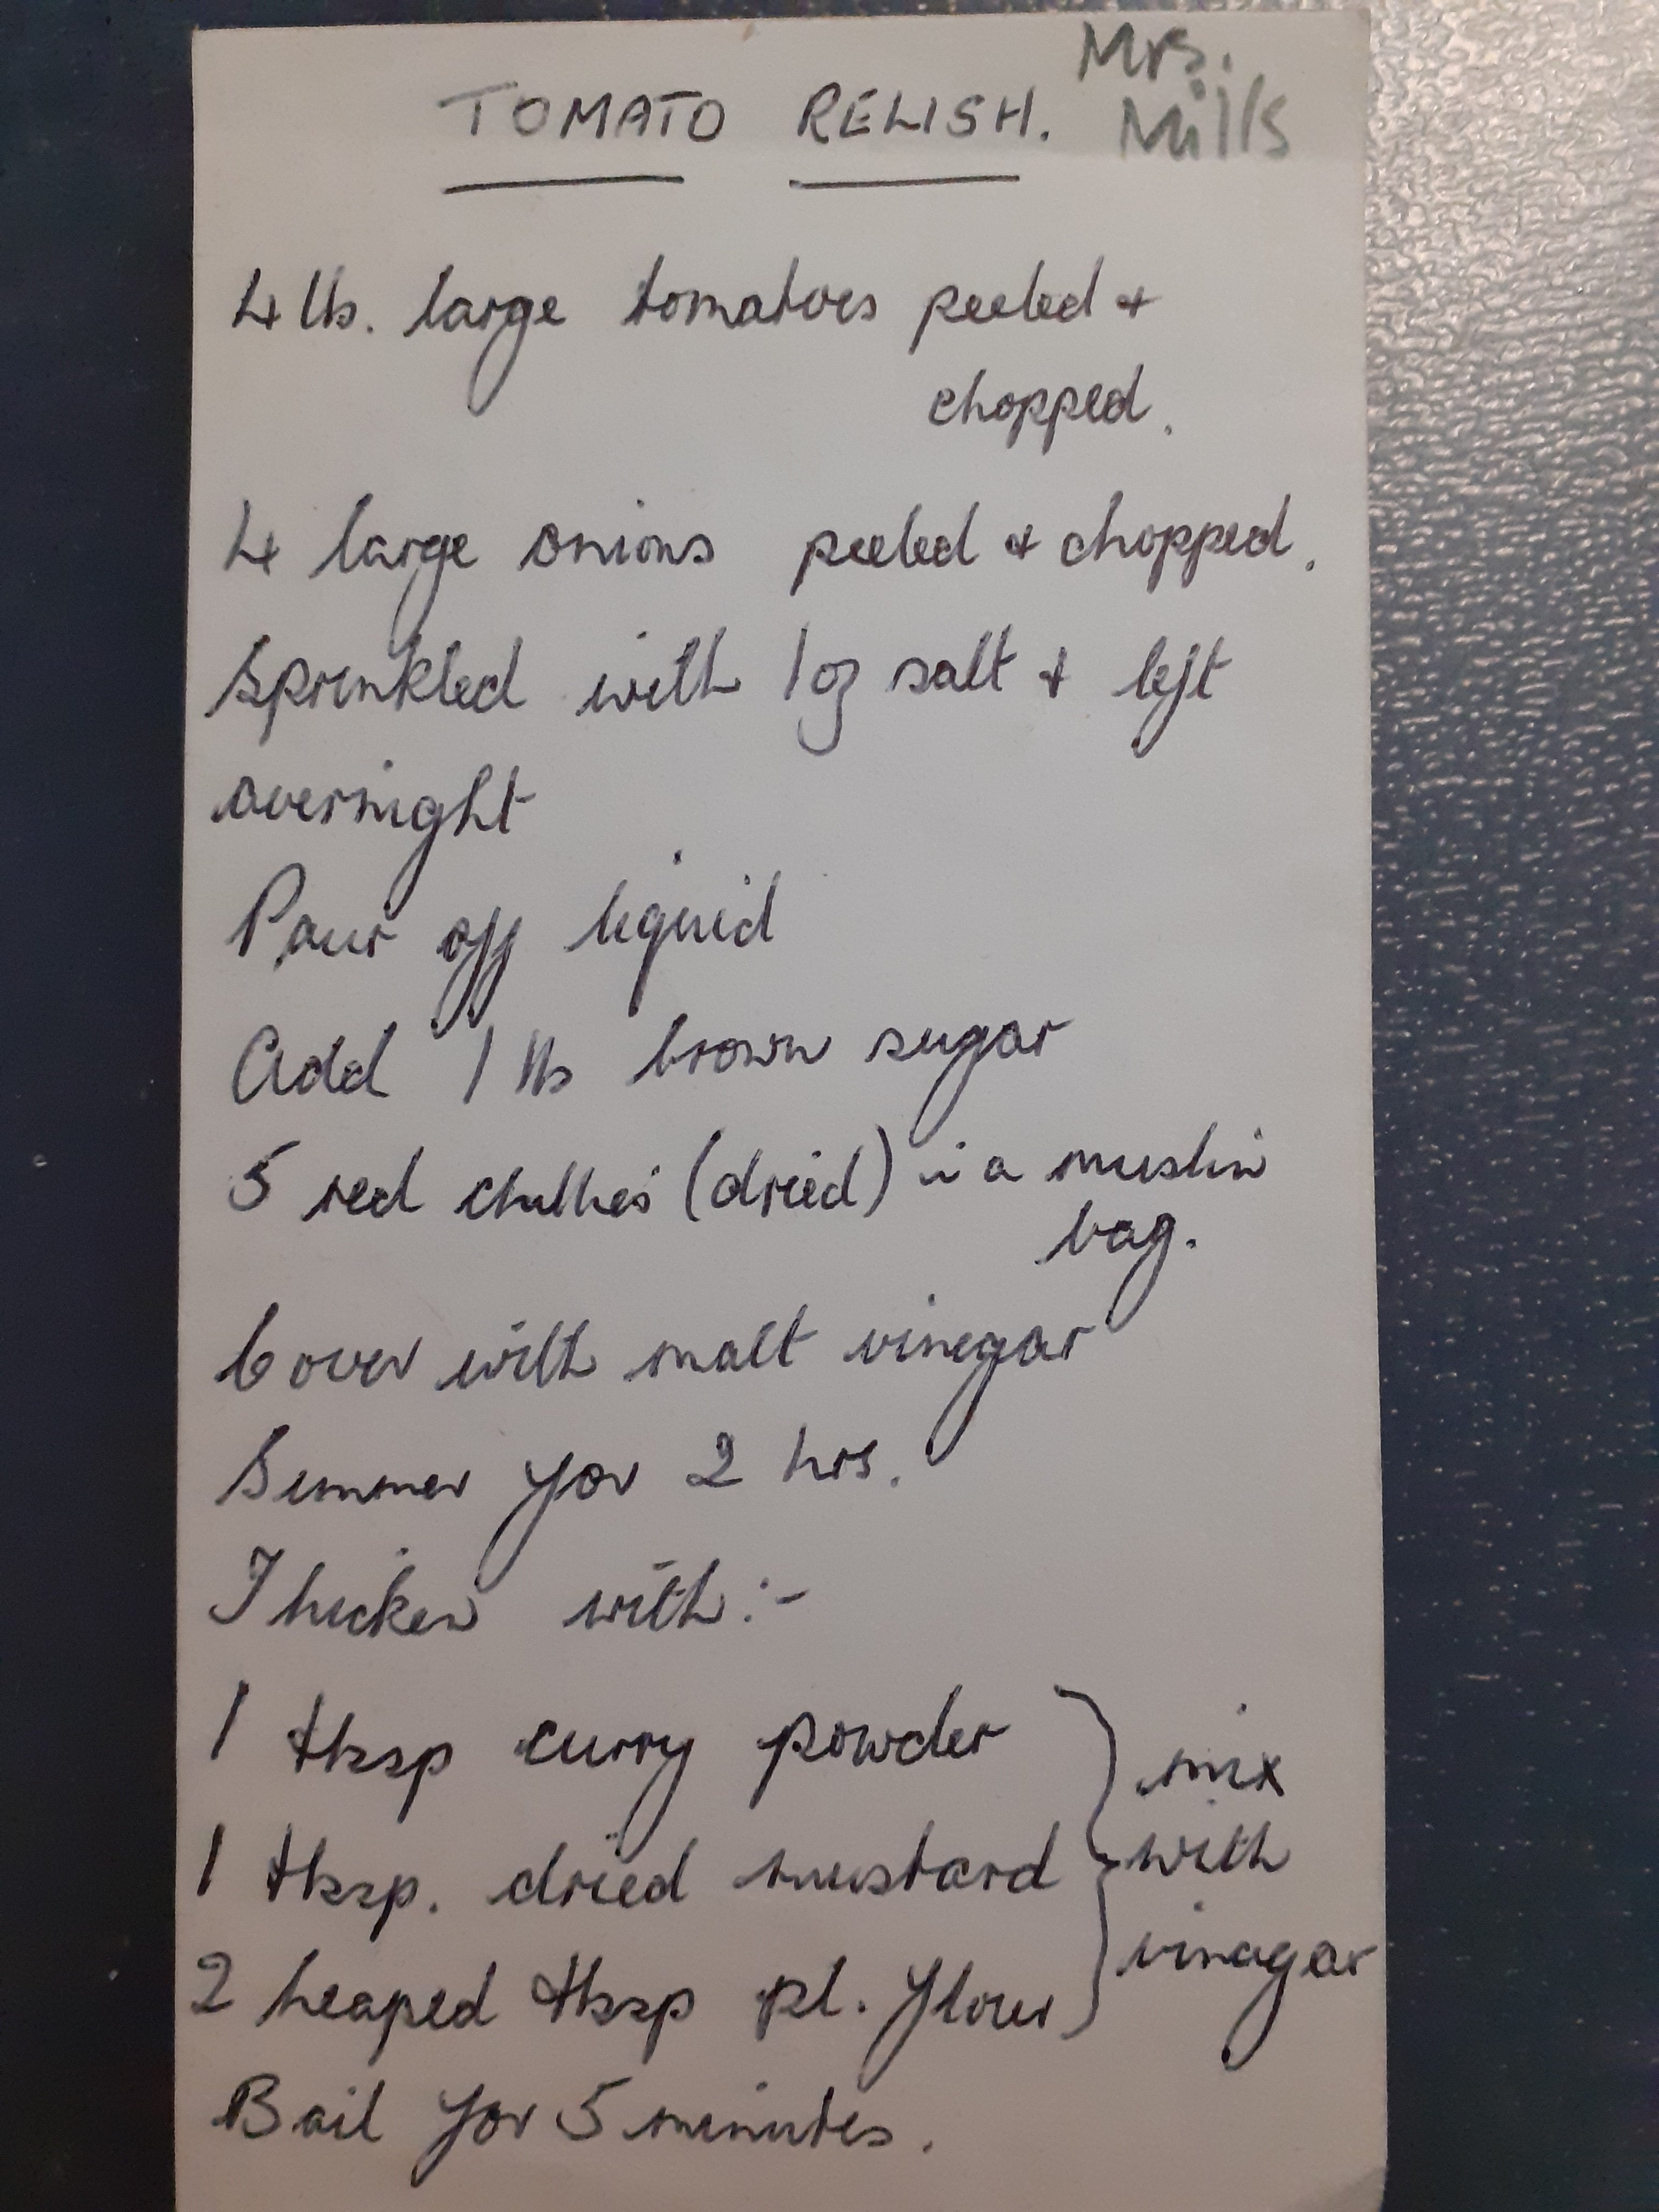 Mrs.
TOMATO RELISH. Mills
4 lb. large tomatoes peeled +
chopped.
4 large onions peeled + chopped.
Sprinkled with 1 oz salt + left
overnight
Pour off liquid
Add 1 lb brown sugar
5 red chillies (dried) in a muslin
bag.
Cover with malt vinegar
Simmer for 2 hrs.
Thicken with :-
1 tbsp curry powder
mix
1 tbsp. dried mustard
with
2 heaped tbsp pl. flour
vinagar
Boil for 5 minutes.